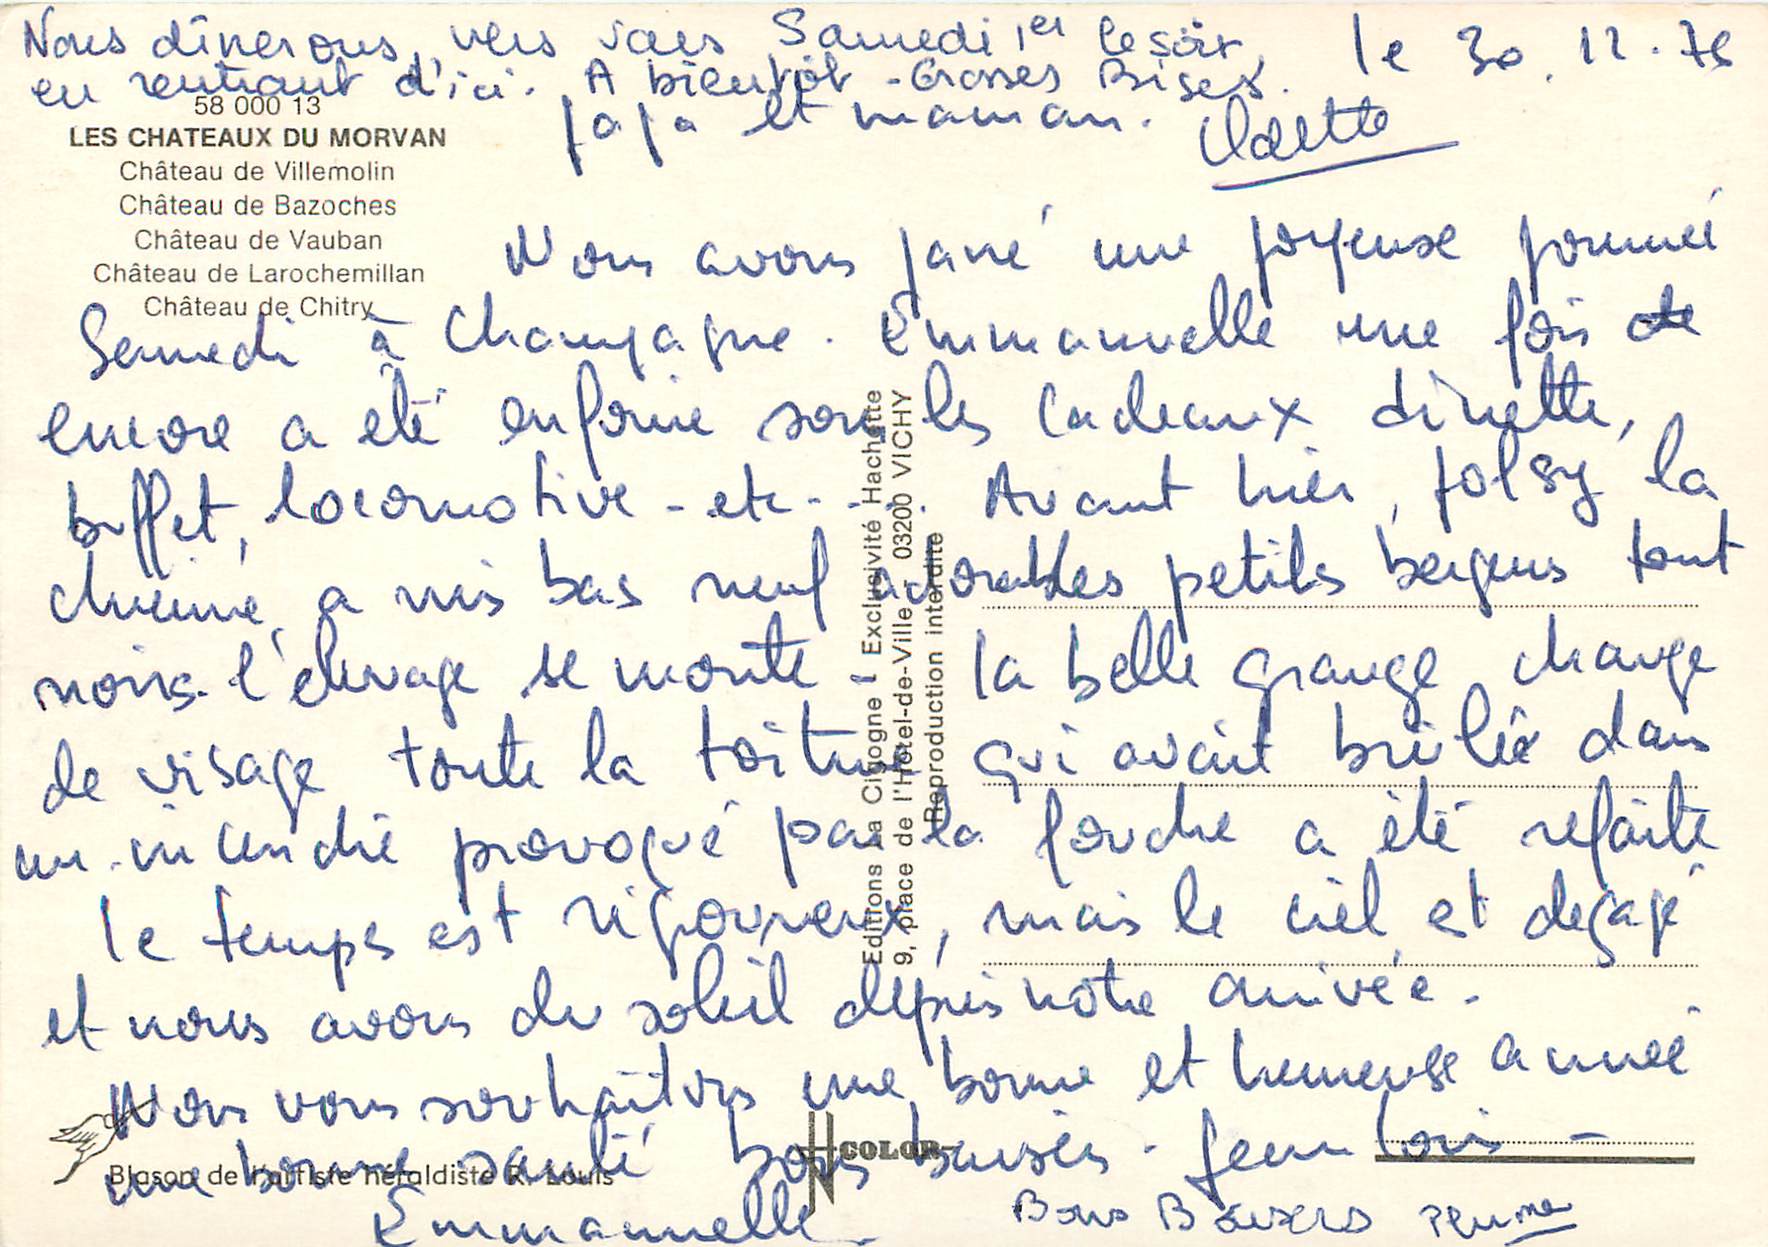 Nous dînerons, vers vous Samedi 1er le soir le 30. 12. 76
en rentrant d'ici. A bientôt - Grosses Bises.
papa et maman. Odette
58 000 13
LES CHATEAUX DU MORVAN
Château de Villemolin
Château de Bazoches
Château de Vauban
Château de Larochemillan
Château de Chitry
Nous avons passé une joyeuse journée
Samedi à Champagne. Emmanuelle une fois de
encore a été enfouie sous les cadeaux dinette,
buffet, locomotive - etc - - . Avant hier, Jolsy la
chienne, a mis bas neuf adorables petits bergers tout
noirs. l'élevage se monte - la belle grange change
de visage toute la toiture qui avait brûlée dans
un incendie provoqué par la foudre a été refaite
le temps est rigoureux, mais le ciel est dégagé
et nous avons du soleil depuis notre arrivée.
Nous vous souhaitons une bonne et heureuse année
une bonne santé bons baisers - Jean Louis -
Emmanuelle.
Bons Baisers
Editions La Cigogne - Exclusivité Hachette
9, place de l'Hôtel-de-Ville - 03200 VICHY
Reproduction interdite
COLOR
Blason de l'artiste héraldiste R. Louis